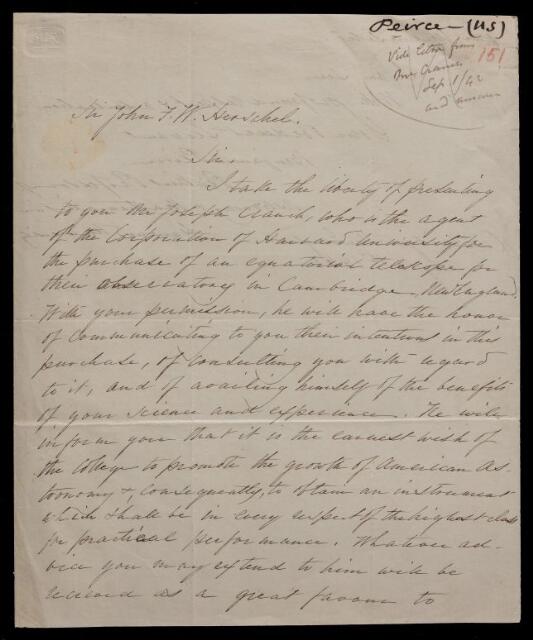 Peirce — (US)
Vide letter from
Mr Cranch
Sep. 1/42
and answer
151
Sir John F. W. Herschel.
Sir
I take the liberty of presenting
to you Mr Joseph Cranch, who is the agent
of the Corporation of Harvard University for
the purchase of an equatorial telescope for
their observatory in Cambridge, New England.
With your permission, he will have the honor
of communicating to you their intentions in this
purchase, of consulting you with regard
to it, and of availing himself of the benefits
of your science and experience. He will
inform you that it is the earnest wish of
the College to promote the growth of American As-
tronomy &, consequently, to obtain an instrument
which shall be in every respect of the highest class
for practical performance. Whatever ad-
vice you may extend to him will be
received as a great favour to